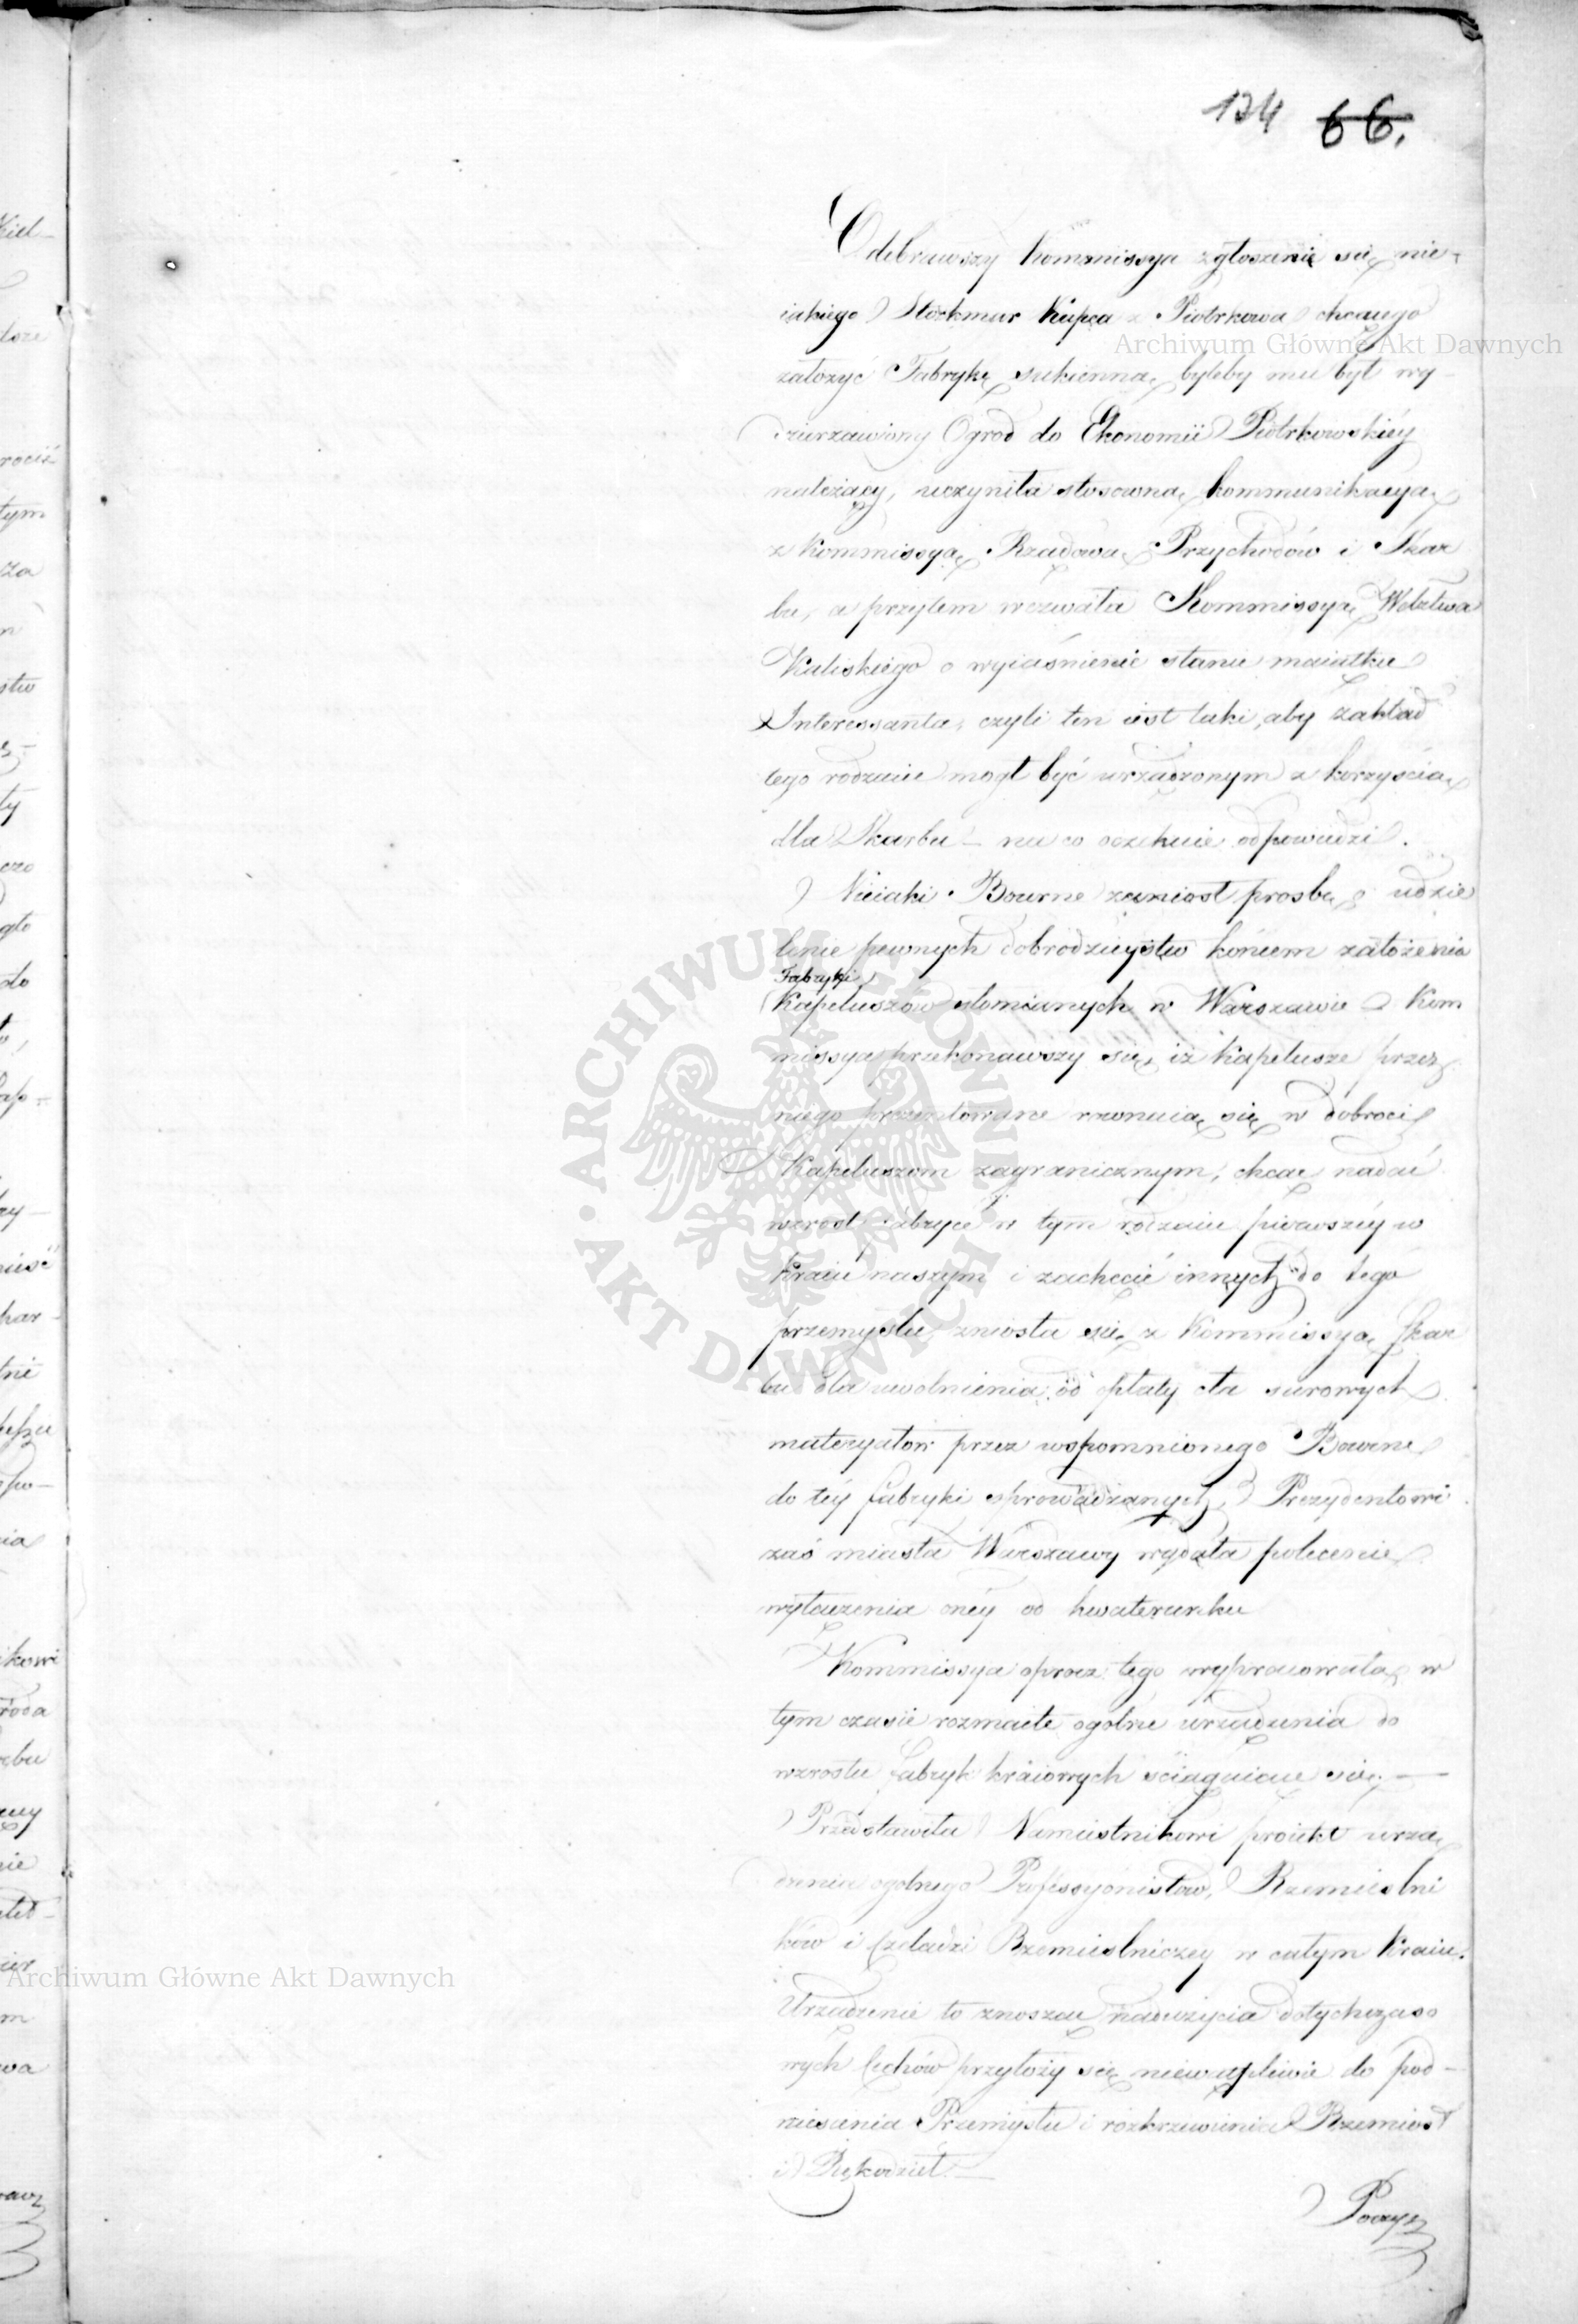 134 66.
Odebrawszy Kommissya zgłoszenie się nie-
iakiego Stockmar Kupca z Piotrkowa chcącego
założyć Fabrykę sukienną, byleby mu był wy-
dzierzawiony Ogrod do Ekonomii Piotrkowskiéy
należący, uczyniła stosowną kommunikacyą
z Kommissyą Rządową Przychodów i Skar
bu, a przytem wezwała Kommissyą Wdztwa
Kaliskiego o wyiaśnienie stanu maiątku
Interessanta, czyli ten iest taki, aby zakład
tego rodzaiu mogł być urządzonym z korzyścią
dla Skarbu – na co oczekuie odpowiedzi.
Nieiaki Bourne zaniosł prosbę o udzie
lenie pewnych dobrodzieystw końcem założenia
Fabryki
Kapeluszów słomianych w Warszawie Kom
missya przekonawszy się, iż Kapelusze przez
niego prezentowane rwonuią się w dobroci
Kapeluszom zagranicznym, chcąc nadać
wzrost fabryce w tym rodzaiu pierwszéy w
kraiu naszym i zachęcić innych do tego
przemysłu, zniosła się z Kommissyą Skar
bu dla uwolnienia od opłaty cła surowych
materyałow przez wspomnionego Bourne
do téy fabryki sprowadzanych, Prezydentowi
zaś miasta Warszawy wydała polecenie
wyłączenia onéy od kwaterunku
Kommissya oprocz tego wypracowała w
tym czasie rozmaite ogólne urządzenia do
wzrostu fabryk kraiowych ściągaiące się. —
Przedstawiła Namiestnikowi proiekt urzą
dzenia ogolnego Professyonistow, Rzemieslni
ków i Czeladzi Rzemieslniczey w całym Kraiu.
Urządzenie to znosząc nadużycia dotychczaso
wych Cechów przyłoży się niewątpliwie do pod-
niesienia Przemysłu i rozkrzewienia Rzemiosł
i Rękodzieł —
Poczyz
Archiwum Główne Akt Dawnych
Archiwum Główne Akt Dawnych
ARCHIWUM GŁÓWNE AKT DAWNYCH